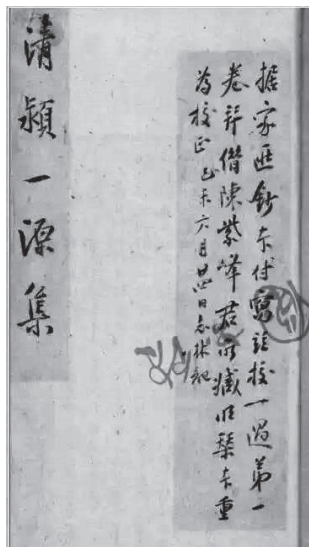 據家匧鈔本付寫校一過第一
卷并借陳紫峰君所藏槧本重
為校正 己未六月廿四日志林記
清潁一源集